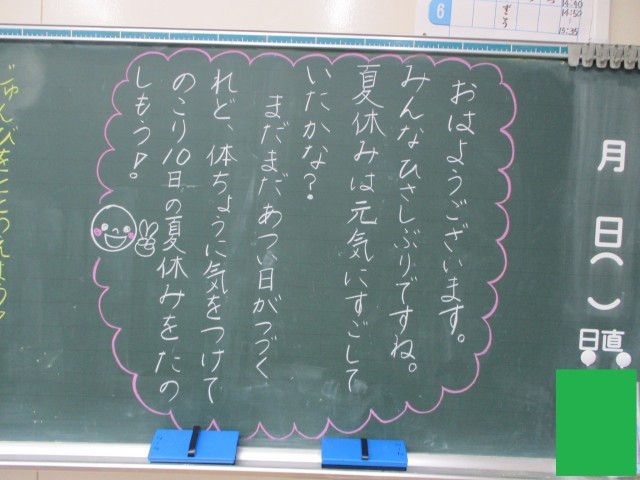 おはようございます。
みんなひさしぶりですね。
夏休みは元気にすごして
いたかな？
まだまだあつい日がつづく
れど、体ちょうに気をつけて
のこり10日の夏休みをたの
しもう！。
月
日（　）
日直
6
ずこう
14:50
15:35